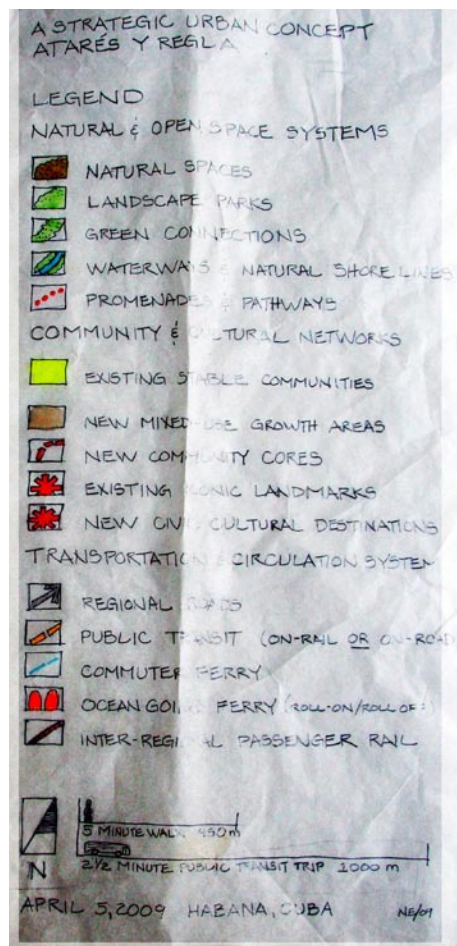 A STRATEGIC URBAN CONCEPT
ATARÉS Y REGLA
LEGEND
NATURAL & OPEN SPACE SYSTEMS
NATURAL SPACES
LANDSCAPE PARKS
GREEN CONNECTIONS
WATERWAYS & NATURAL SHORELINES
PROMENADES & PATHWAYS
COMMUNITY & CULTURAL NETWORKS
EXISTING STABLE COMMUNITIES
NEW MIXED-USE GROWTH AREAS
NEW COMMUNITY CORES
EXISTING ICONIC LANDMARKS
NEW CIVIC CULTURAL DESTINATIONS
TRANSPORTATION & CIRCULATION SYSTEM
REGIONAL ROADS
PUBLIC TRANSIT (ON-RAIL OR ON-ROAD
COMMUTER FERRY
OCEAN GOING FERRY (ROLL-ON/ROLL OFF)
INTER-REGIONAL PASSENGER RAIL
5 MINUTE WALK 450m
2½ MINUTE PUBLIC TRANSIT TRIP 1000 m
N
APRIL 5, 2009 HABANA, CUBA NE/09